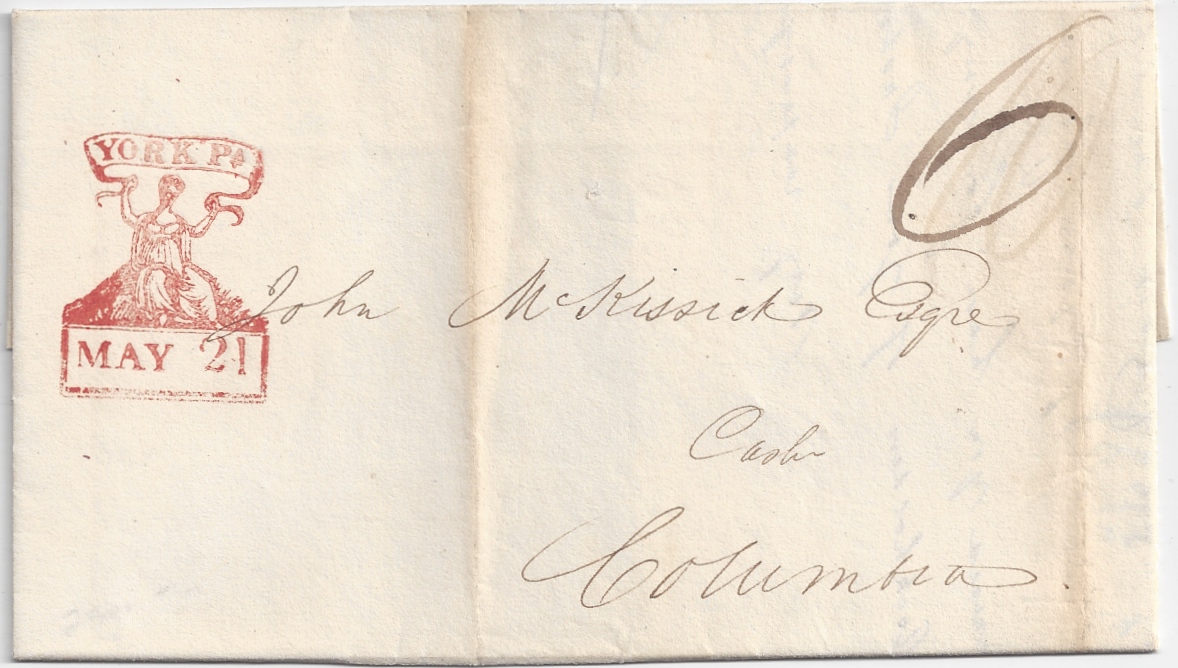 YORK PA
MAY 21
6
John McKissick Esqre
Cashr
Columbia